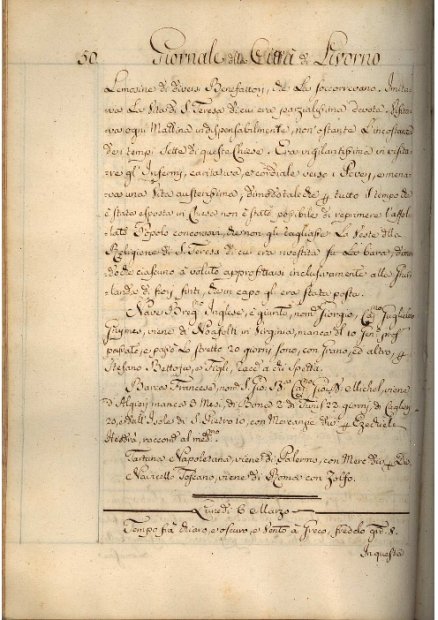 50 Giornale della Città di Livorno
Limosine di diversi Benefattori, che La soccorrevano. Imita
va La Vita di S. Teresa di cui era parzialissima devota. Visita
va ogni Mattina indispensabilmente, non ostante L'incostanza
de i tempi Sette di queste Chiese. Era vigilantissima in visita
re gl'Infermi, caritativa, e cordiale verso i Poveri, e mena
va una Vita austerissima, dimodotalche p tutto il tempo che
è stata esposta in Chiesa non è stato possibile di reprimere l'affol
lato Popolo concorsovi, che non gli tagliasse Le Veste della
Religione di S. Teresa di cui era vestita su La bara, dimo
do che ciascuno à voluto approfittarsi inclusivamente alla Ghir
landa di fiori finti, che in capo gl'era stata posta.
Nave Inglese, è giunta, nom. Giorgio, Cap. Guglielmo
Guymes, viene di Noafolk in Virginia, manca di 10
passato, e passò Lo stretto 20 giorni sono, con Grano, ed altro, p
Stefano Bettoja, e Figli, racc. a chi Spetta.
Barca Francese, nom. S. Gio. Cap. Michel, viene
d'Algieri manca 3 Mesi, di Bona 2 di Tunis 22 giorni, di Caglieri
20, e dall'Isola di S. Pietro 10, con Mercanzie p Ezechiele
raccom. al med.
Tartana Napoletana, viene di Palermo, con Merc.
Navicello Toscano, viene di Roma con Zolfo.
Lunedi 6 Marzo
Tempo frà chiaro, e oscuro, e Vento à Greco, freddo gr. 8.
In questa